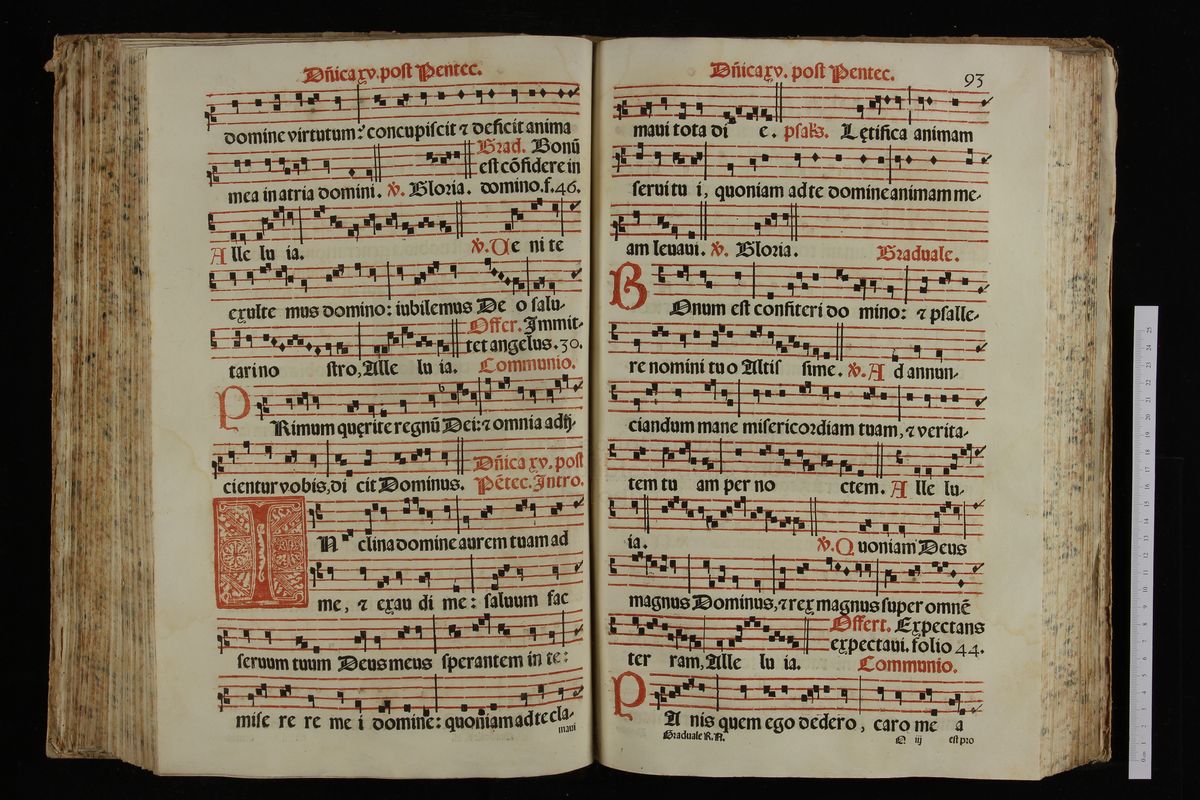 Dñica xv. post Pentec.
domine virtutum: concupiscit ⁊ deficit anima
Grad. Bonũ
est cõfidere in
mea in atria domini. ℣. Gloria. domino. f. 46.
Alle lu ia. ℣. Ue ni te
exulte mus domino: iubilemus De o salu-
Offer. Immit-
tet angelus. 30.
tari no stro, Alle lu ia. Communio.
PRimum quęrite regnũ Dei: ⁊ omnia adij-
cientur vobis, di cit Dominus.
Dñica xv. post
Pẽtec. Intro.
IN clina domine aurem tuam ad
me, ⁊ exau di me: saluum fac
seruum tuum Deus meus sperantem in te:
mise re re me i domine: quoniam ad te cla-
maui
Dñica xv. post Pentec.
93
maui tota di e. psalḿs. Lętifica animam
serui tu i, quoniam ad te domine animam me-
am leuaui. ℣. Gloria. Graduale.
BOnum est confiteri do mino: ⁊ psalle-
re nomini tu o Altis sime. ℣. Ad annun-
ciandum mane misericordiam tuam, ⁊ verita-
tem tu am per no ctem. Alle lu-
ia. ℣. Quoniam Deus
magnus Dominus, ⁊ rex magnus super omnẽ
Offert. Expectans
expectaui. folio 44.
ter ram, Alle lu ia. Communio.
PA nis quem ego dedero, caro me a
Graduale R. N. N iij est pro
25 24 23 22 21 20 19 18 17 16 15 14 13 12 11 10 9 8 7 6 5 4 3 2 1 0 cm